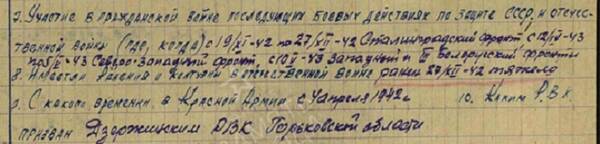 7. Участие в гражданской войне последующих боевых действиях по защите СССР и отечес-
твенной войне (где, когда) с 19/XI-42 по 27/XII-42 Сталинградский фронт с 12/VI-43
по 5/X-43 Северо-Западный фронт, с 10/X-43 Западный и III Белорусский фронты
8. Имеются ранения и контузии в отечественной войне ранен 27/XII-42 тяжело
9. С какого времени в Красной Армии с 4 апреля 1942г. 10. Каким Р.В.К.
призван Дзержинским РВК Горьковской области